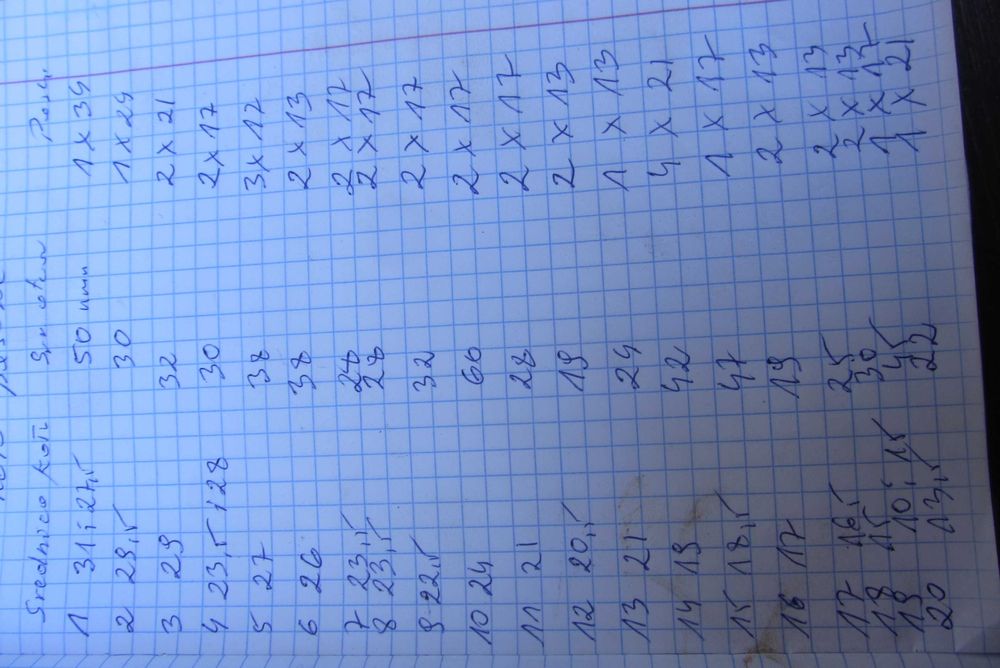 Średnica koñ Śr otw
1 31 i 27,5 50 mm 1 x 39
2 29,5 30 1 x 29
3 29 32 2 x 21
4 23,5 i 28 30 2 x 17
5 27 38 3 x 17
6 26 38 2 x 13
7 23,5 28 2 x 17
8 23,5 28 2 x 17
9 22,5 32 2 x 17
10 24 60 2 x 17
11 21 28 2 x 17
12 20,5 19 2 x 13
13 21 24 1 x 13
14 19 42 4 x 21
15 18,5 47 1 x 17
16 17 19 2 x 13
17 16,5 25 2 x 13
18 15 30 2 x 13
19 10, 15 45 1 x 17
20 13,5 22 1 x 21